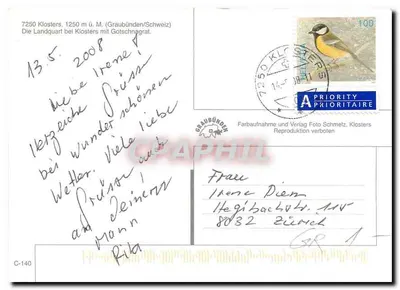 7250 Klosters. 1250 m ü. M. (Graubünden/Schweiz)
Die Landquart bei Klosters mit Gotschnagrat.
13.5.2008
Liebe Irene!
Herzliche Grüsse
bei wunderschönem
Wetter. Viele liebe
Grüsse auch
an Deinen
Mann
Rita
C-140
GRAUBÜNDEN
Farbaufnahme und Verlag Foto Schmelz, Klosters
Reproduktion verboten
7250 KLOSTERS
100
A PRIORITY
PRIORITAIRE
CPAPHIL
Frau
Irene Diem
Hegibachstr. 115
8032 Zürich
GR 1-